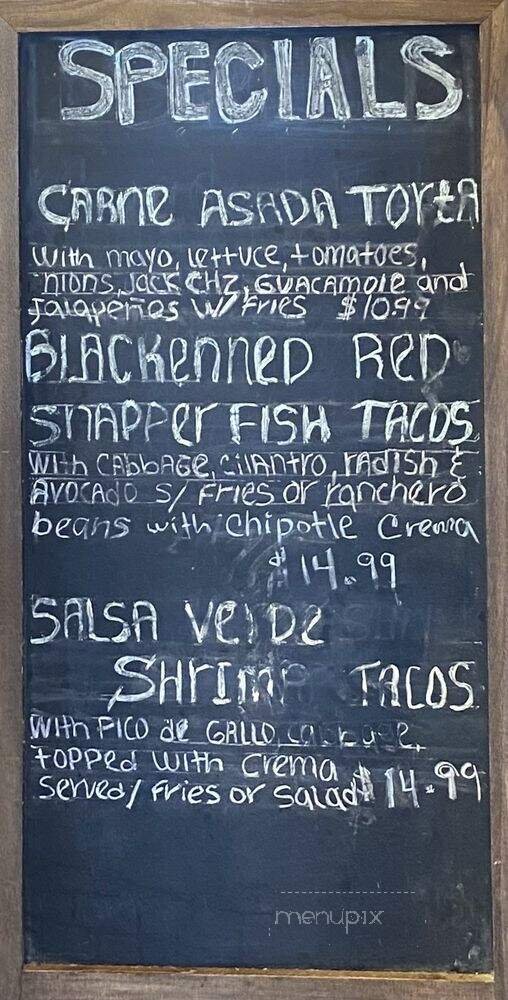 SPECIALS
CARNE ASADA TORTA
With mayo, lettuce, tomatoes,
nions, Jack CHZ, GUACAMOLE and
Jalapeños W/ Fries $10.99
BLACKENNED RED
SNAPPER FISH TACOS
With CABBAGE, CILANTRO, radish &
AVOCADO S/ Fries or ranchero
beans with Chipotle Crema
$14.99
SALSA VERDE
SHRIMP TACOS
With PICO de GALLO, cabbage,
topped with crema
Served/ Fries or Salad $14.99
menupix